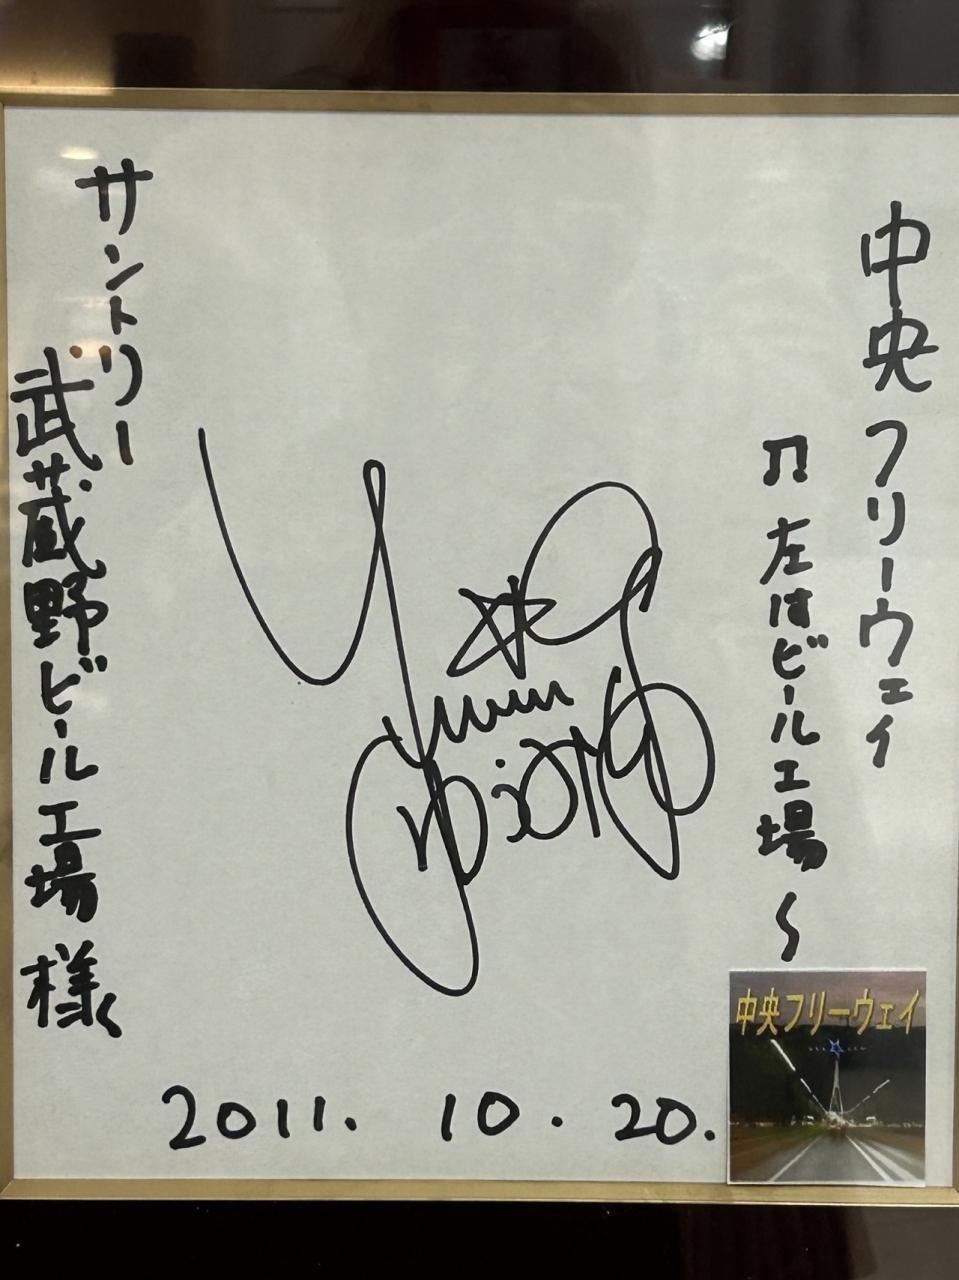 中央フリーウェイ
♫ 左はビール工場〜
サントリー
武蔵野ビール工場様
2011. 10. 20.
中央フリーウェイ